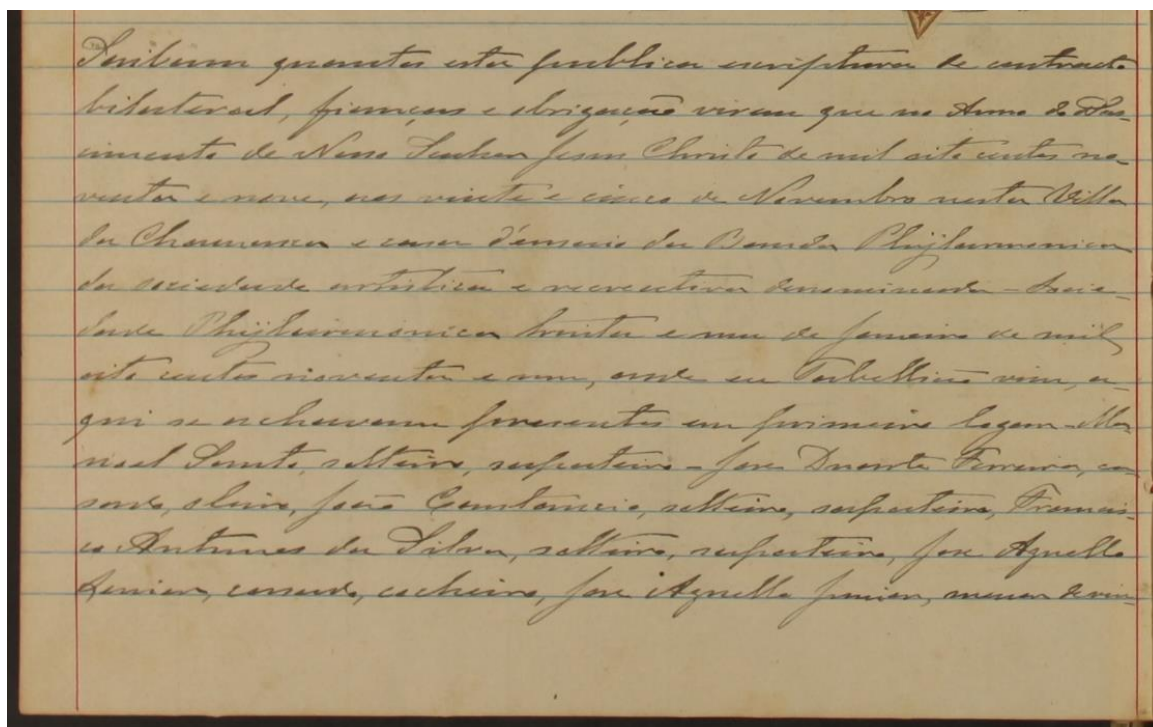 Saibam quantos esta publica escriptura de contracto
bilateral, fianças e obrigação virem que no Anno do Nas-
cimento de Nosso Senhor Jesus Christo de mil oito centos no-
venta e nove, aos vinte e cinco de Novembro nesta Villa
da Chamusca e casa d'ensaio da Banda Phylarmonica
da sociedade artistica e recreativa denominada - Socie-
dade Phylarmonica trinta e um de Janeiro de mil
oito centos noventa e um, onde eu Tabellião vim, a-
qui se achavam presentes em primeiro logar - Ma-
noel Santo, solteiro, sapateiro - José Duarte Ferreira, ca-
sado, oleiro, João Constancio, solteiro, sapateiro, Francis-
co Antunes da Silva, solteiro, sapateiro, José Agnello
Senior, casado, cocheiro, José Agnello Junior, menor de vin-